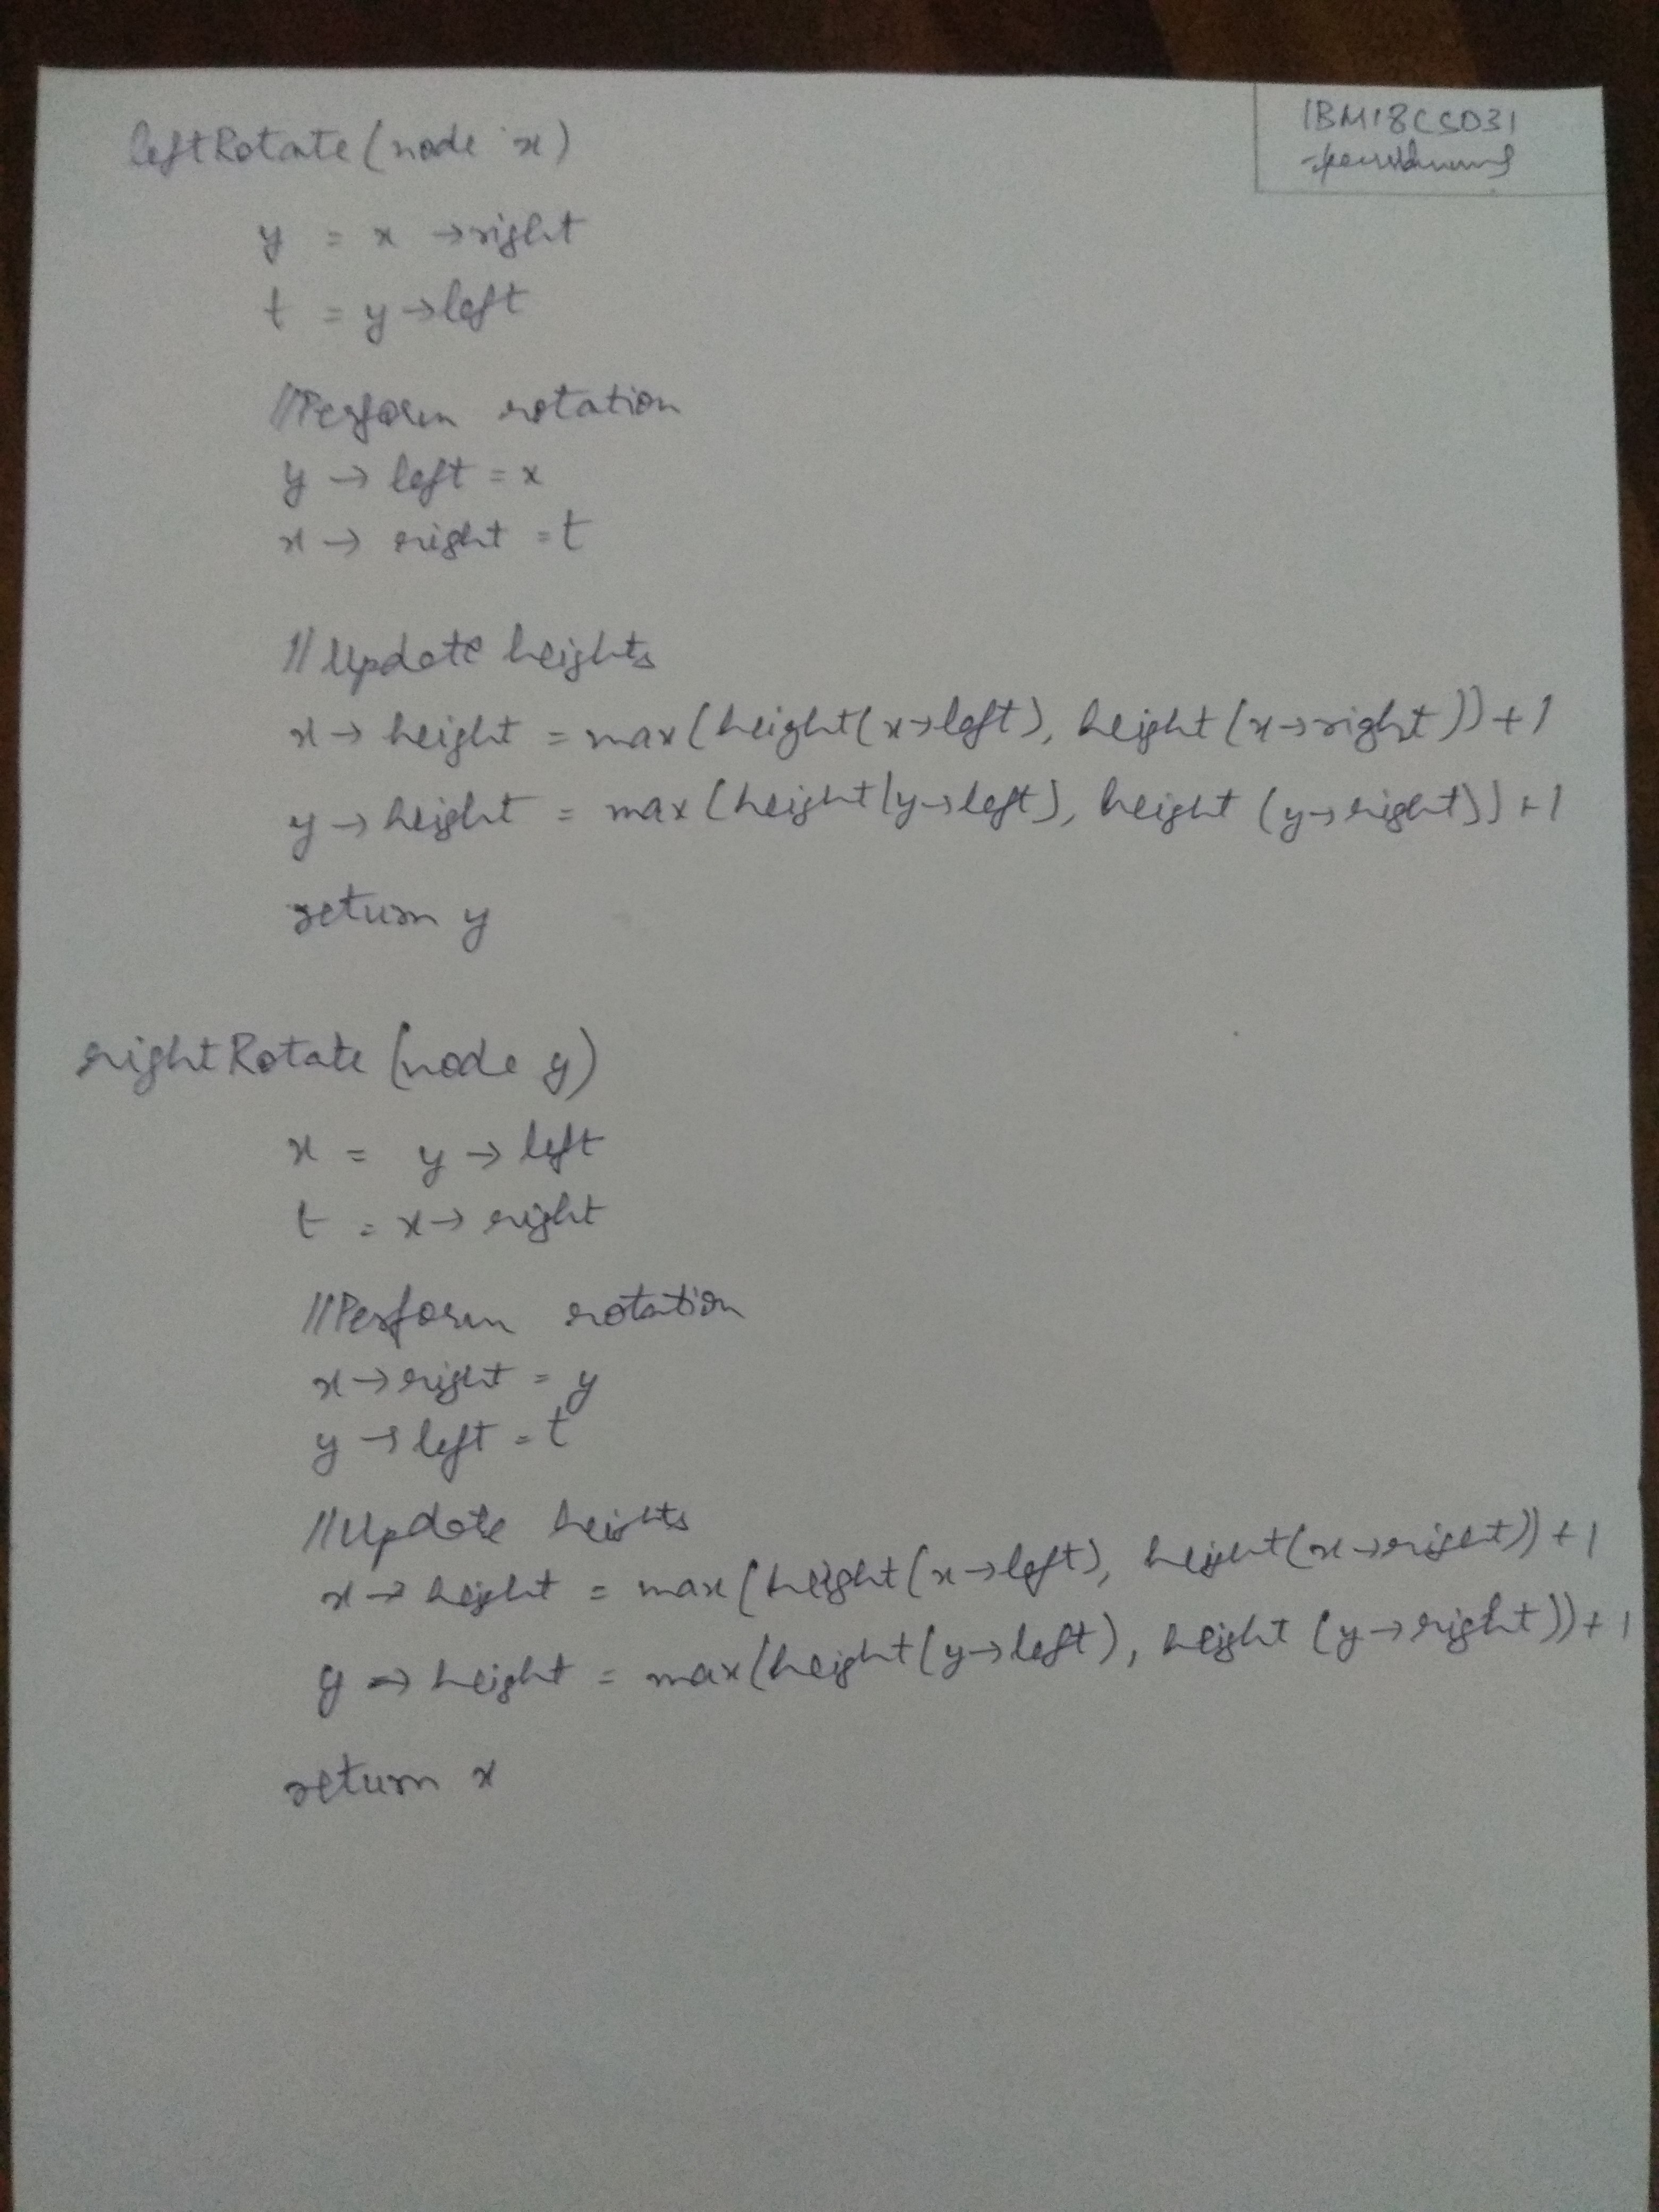 1BM18CS031
leftRotate (node x)
y = x → right
t = y → left
//Perform rotation
y → left = x
x → right = t
//Update heights
x → height = max(height(x→left), height(x→right))+1
y → height = max(height(y→left), height (y→right))+1
return y
rightRotate (node y)
x = y → left
t = x → right
//Perform rotation
x → right = y
y → left = t
//Update heights
x → height = max(height(x→left), height(x→right))+1
y → height = max(height(y→left), height (y→right))+1
return x